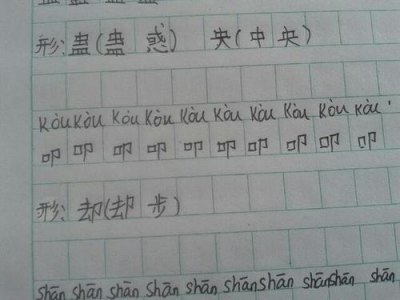 形: 蛊(蛊惑) 央(中央)
Kòu Kòu Kòu Kòu Kòu Kòu Kòu Kòu Kòu Kòu
叩 叩 叩 叩 叩 叩 叩 叩 叩 叩
形: 却(却步)
shān shān shān shān shān shān shān shān shān shān